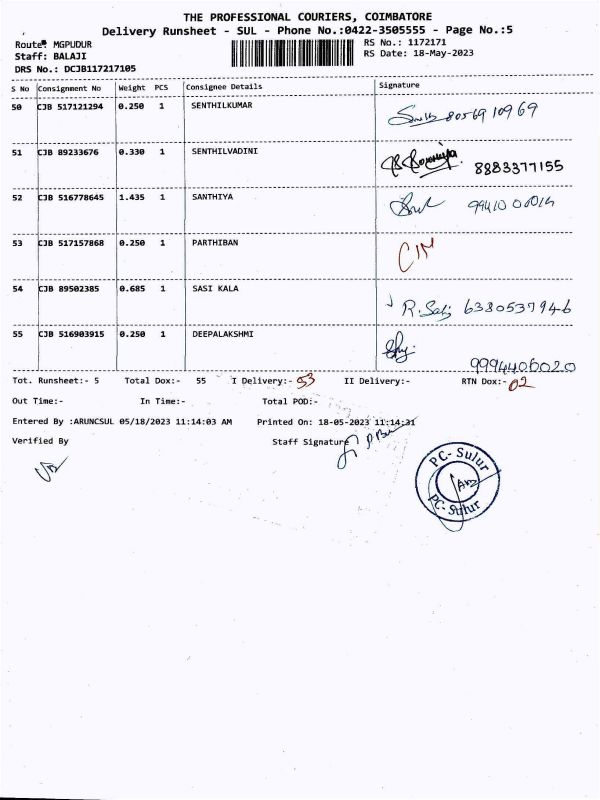 THE PROFESSIONAL COURIERS, COIMBATORE
Delivery Runsheet - SUL - Phone No.:0422-3505555 - Page No.:5
Route: MGPUDUR RS No.: 1172171
Staff: BALAJI RS Date: 18-May-2023
DRS No.: DCJB117217105
S No Consignment No Weight PCS Consignee Details Signature
50 CJB 517121294 0.250 1 SENTHILKUMAR 8056910969
51 CJB 89233676 0.330 1 SENTHILVADINI 8883377155
52 CJB 516778645 1.435 1 SANTHIYA
53 CJB 517157868 0.250 1 PARTHIBAN
54 CJB 89502385 0.685 1 SASI KALA R. 6380537946
55 CJB 516903915 0.250 1 DEEPALAKSHMI 9994406020
Tot. Runsheet:- 5 Total Dox:- 55 I Delivery:- 53 II Delivery:- RTN Dox:- 02
Out Time:- In Time:- Total POD:-
Entered By :ARUNCSUL 05/18/2023 11:14:03 AM Printed On: 18-05-2023 11:14:31
Verified By Staff Signature
PC- Sulur
PC- Sulur